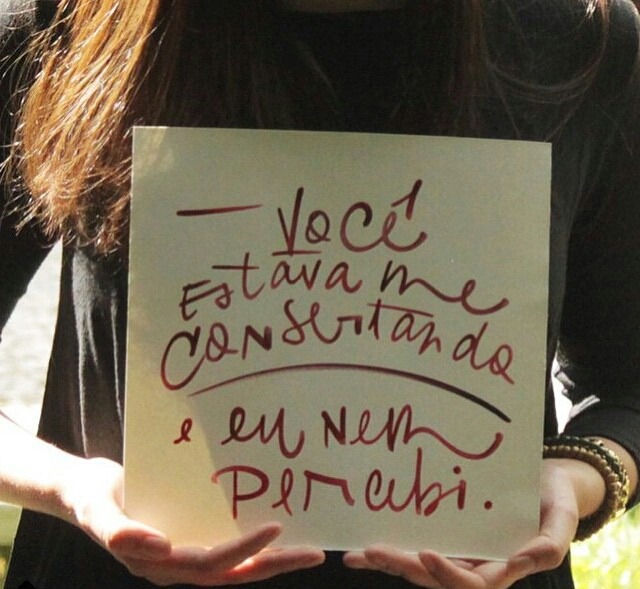 — Você
Estava me
consertando
e eu nem
percebi.